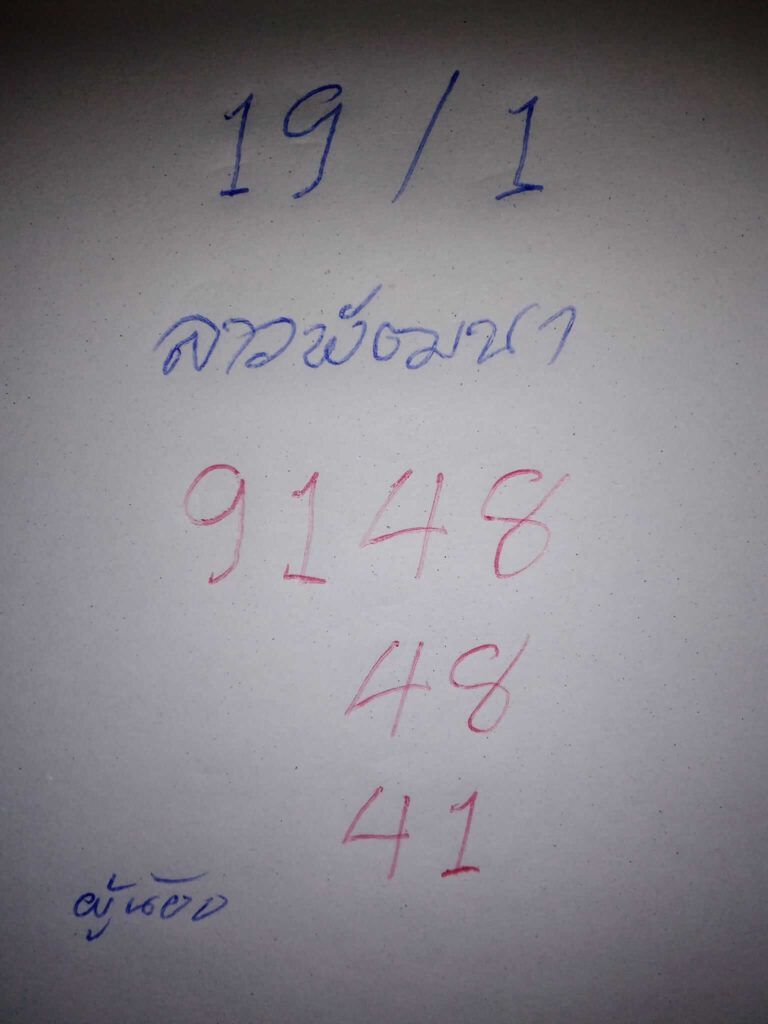 19/1
ลาวพัฒนา
9148
48
41
ผู้น้อย